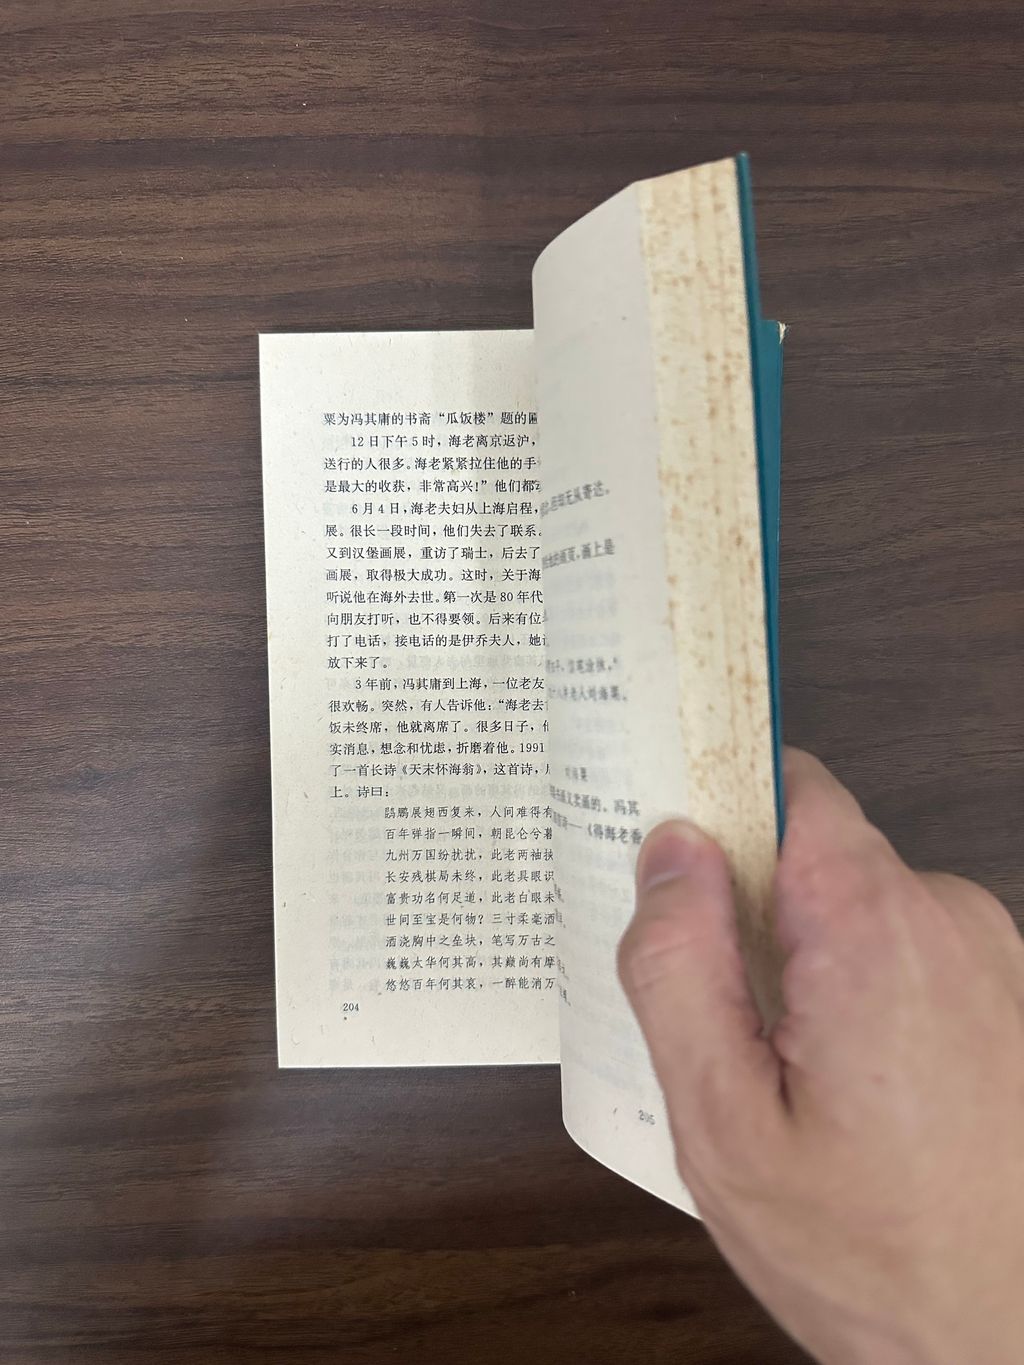 粟为冯其庸的书斋“瓜饭楼”题的匾
12日下午5时，海老离京返沪，
送行的人很多。海老紧紧拉住他的手
是最大的收获，非常高兴！”他们都
6月4日，海老夫妇从上海启程，
展。很长一段时间，他们失去了联系。
又到汉堡画展，重访了瑞士，后去了
画展，取得极大成功。这时，关于海
听说他在海外去世。第一次是80年代
向朋友打听，也不得要领。后来有位
打了电话，接电话的是伊乔夫人，她
放下来了。
3年前，冯其庸到上海，一位老友
很欢畅。突然，有人告诉他：“海老去
饭未终席，他就离席了。很多日子，
实消息，想念和忧虑，折磨着他。1991
了一首长诗《天末怀海翁》，这首诗，
上。诗曰：
鹍鹏展翅西复来，人间难得有
百年弹指一瞬间，朝昆仑兮暮
九州万国纷扰扰，此老两袖挟
长安残棋局未终，此老具眼识
富贵功名何足道，此老白眼未
世间至宝是何物？三寸柔毫洒
酒浇胸中之垒块，笔写万古之
巍巍太华何其高，其巅尚有摩
悠悠百年何其哀，一醉能消万
204
却无从寄达。
的画页，画上是
信笔涂抹。”
八年老人刘海粟。
海粟
又卖画的。冯其
《得海老香
205